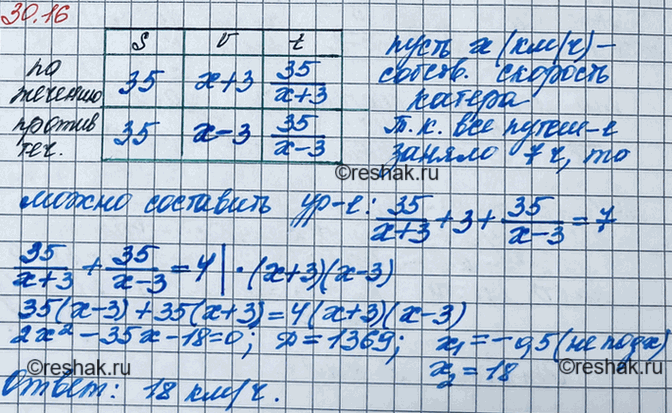 30.16
S v t
по течению 35 x+3 35/(x+3)
против теч. 35 x-3 35/(x-3)
пусть x (км/ч) -
собств. скорость
катера
Т.к. все путеш-е
заняло 7 ч, то
©reshak.ru
можно составить ур-е: 35/(x+3) + 3 + 35/(x-3) = 7
35/(x+3) + 35/(x-3) = 4 | · (x+3)(x-3)
35(x-3) + 35(x+3) = 4(x+3)(x-3)
2x² - 35x - 18 = 0; D = 1369; x₁ = -0,5 (не подх)
x₂ = 18
©reshak.ru
©reshak.ru
Ответ: 18 км/ч.